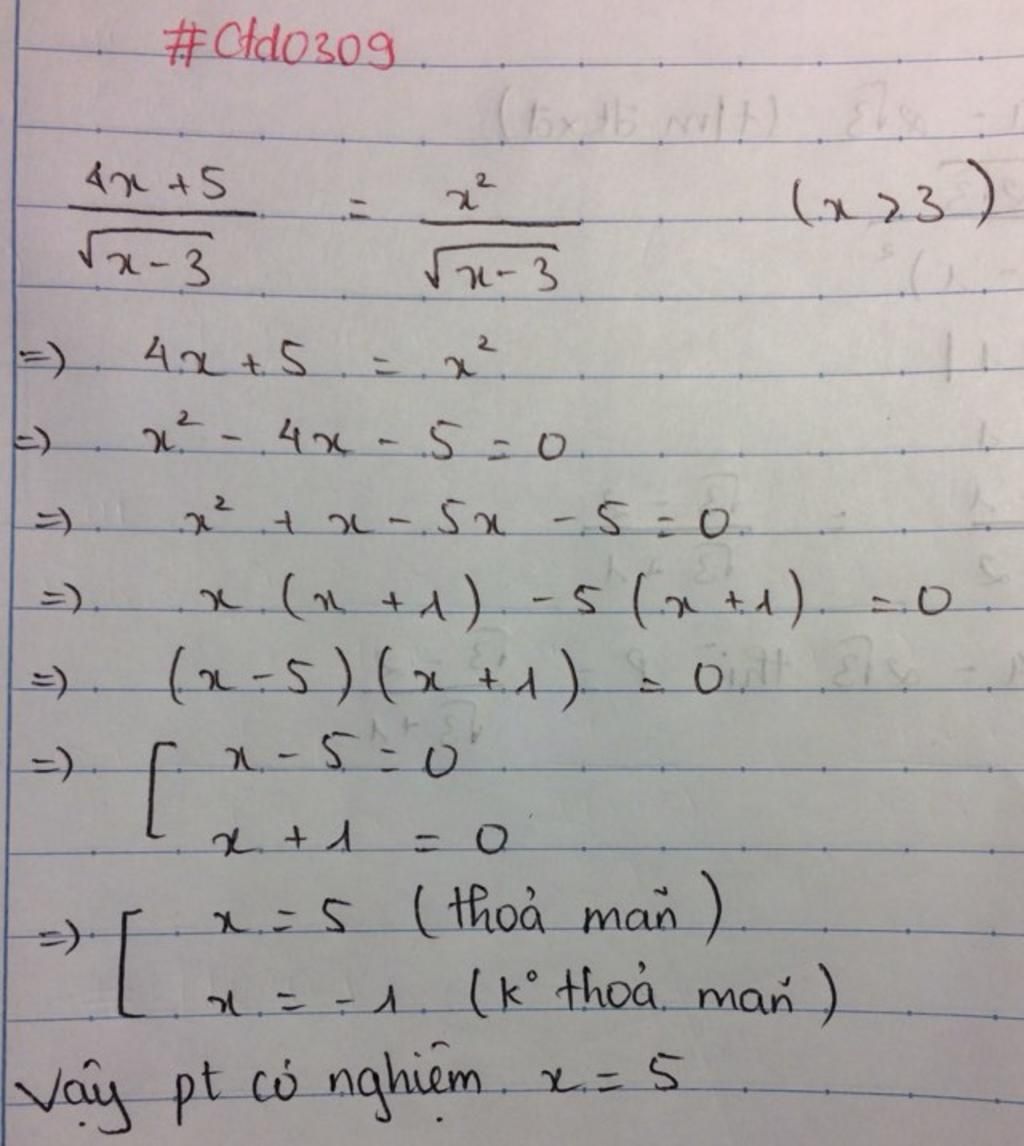 #Ctd0309
4x + 5 / √(x - 3) = x² / √(x - 3) (x > 3)
=) 4x + 5 = x²
=) x² - 4x - 5 = 0
=) x² + x - 5x - 5 = 0
=) x (x + 1) - 5 (x + 1) = 0
=) (x - 5) (x + 1) = 0
=) [ x - 5 = 0
x + 1 = 0
=) [ x = 5 (thoả mãn)
x = -1 (k° thoả mãn)
Vậy pt có nghiệm x = 5